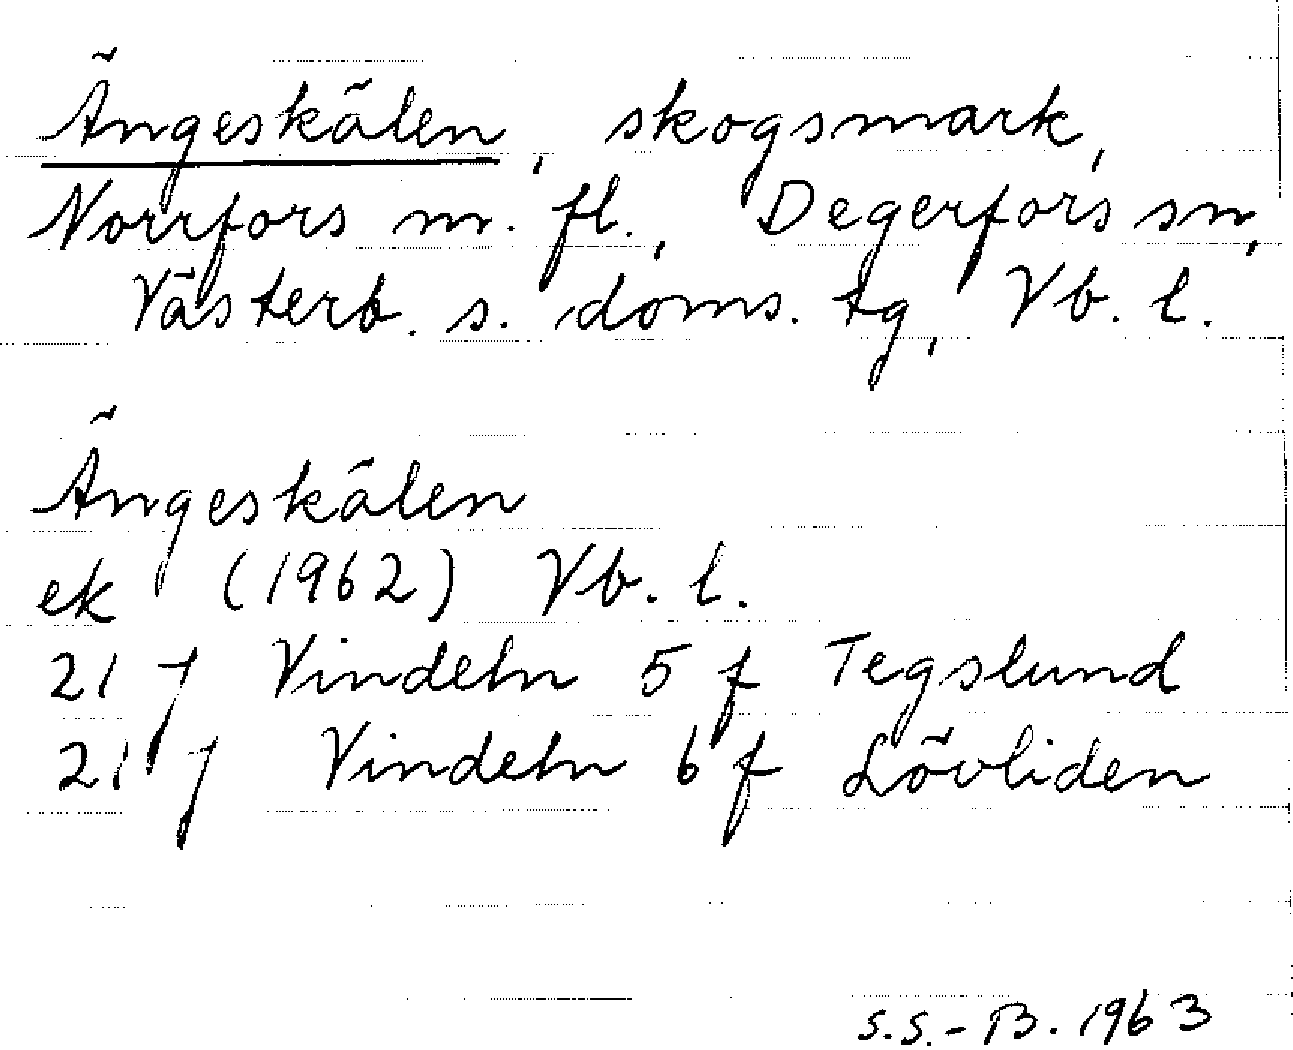 Ängeskälen, skogsmark,
Norrfors m. fl., Degerfors sn,
Västerb. s. doms. tg, Vb. l.
Ängeskälen
ek (1962) Vb. l.
21 J Vindeln 5 f Tegslund
21 J Vindeln 6 f Lövliden
S.S.-B. 1963